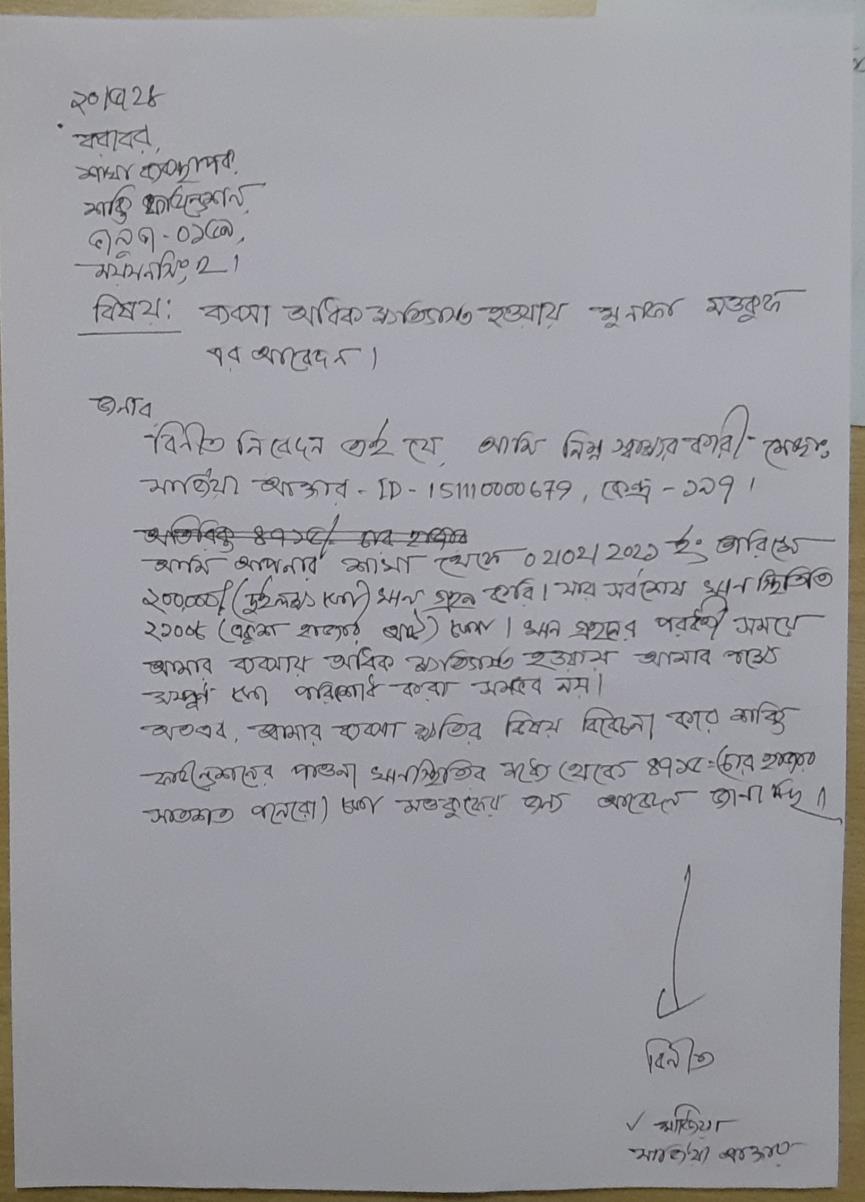 ২০/৫/২৪
বরাবর,
শাখা ব্যবস্থাপক,
শক্তি ফাউন্ডেশন,
ভালুকা-০১৫৯,
ময়মনসিংহ।
বিষয়: ব্যবসা অধিক ক্ষতিগ্রস্ত হওয়ায় মুনাফা মওকুফ
এর আবেদন।
জনাব
বিনীত নিবেদন এই যে, আমি নিম্ন স্বাক্ষরকারী মোছাঃ
মার্জিয়া আক্তার - ID - 151110000679, কেন্দ্র - ১২৭।
অতিরিক্ত ৪৭১৫/ চার হাজার
আমি আপনার শাখা থেকে ০২/০২/২০২১ ইং তারিখে
২০০,০০০/ (দুইলক্ষ টাকা) ঋন গ্রহন করি। যার সর্বশেষ ঋন স্থিতি
২১০০৮ (একুশ হাজার আট) টাকা। ঋন গ্রহনের পরবর্তী সময়ে
আমার ব্যবসায় অধিক ক্ষতিগ্রস্ত হওয়ায় আমার পক্ষে
সম্পূর্ণ টাকা পরিশোধ করা সম্ভব নয়।
অতএব, আমার ব্যবসা ক্ষতির বিষয় বিবেচনা করে শক্তি
ফাউন্ডেশনের পাওনা ঋনস্থিতির মধ্যে থেকে ৪৭১৫= (চার হাজার
সাতশত পনেরো) টাকা মওকুফের জন্য আবেদন জানাচ্ছি।
বিনীত
মার্জিয়া
মার্জিয়া আক্তার